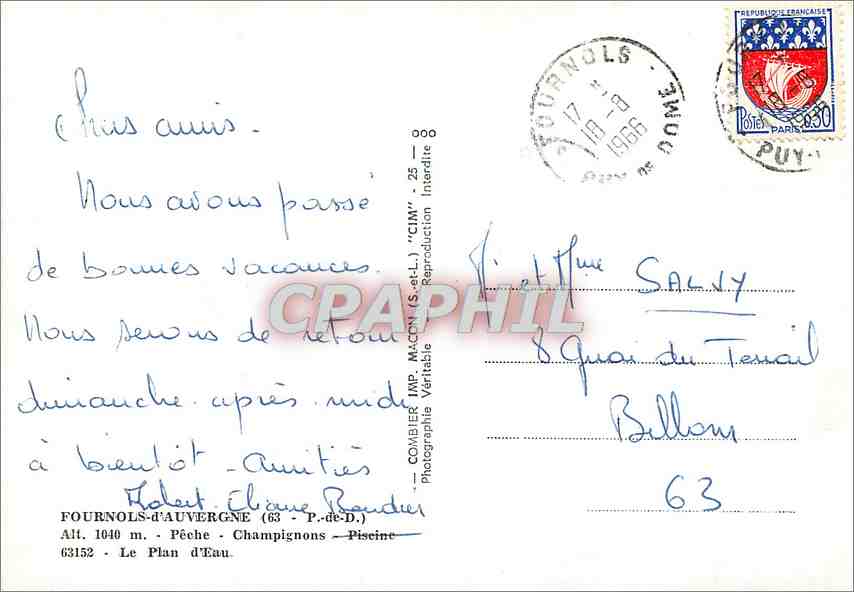 Chers amis.
Nous avons passé
de bonnes vacances.
Nous serons de retour
dimanche après midi
à bientôt - Amitiés
Robert Eliane
FOURNOLS-d'AUVERGNE (63 - P.-de-D.)
Alt. 1040 m. - Pêche - Champignons - Piscine
63152 - Le Plan d'Eau.
COMBIER IMP. MACON (S.-et-L.) "CIM" - 25 -
Photographie Véritable - Reproduction Interdite
CPAPHIL
FOURNOLS
17 H
18-8
1966
PUY DE DOME
REPUBLIQUE FRANÇAISE
POSTES 0,30
PARIS
PUY-
Mr et Mme SALVY
8 Quai du Terrail
Billom
63